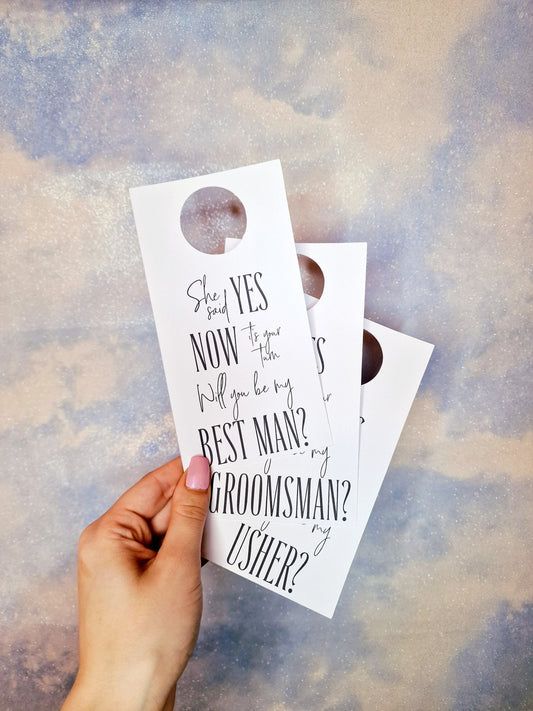 She said YES
NOW it's your turn
Will you be my
BEST MAN?
ES
my
GROOMSMAN?
my
USHER?